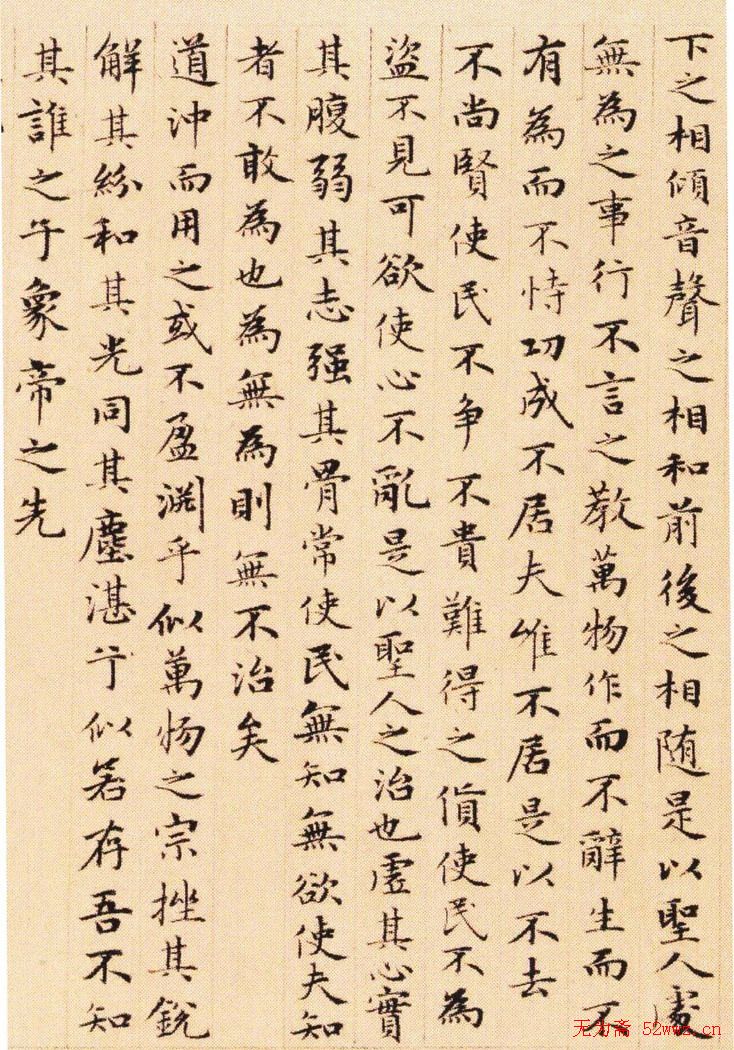 下之相傾音聲之相和前後之相随是以聖人處
無為之事行不言之教萬物作而不辭生而不
有為而不恃功成不居夫惟不居是以不去
不尚賢使民不争不貴難得之貨使民不為
盜不見可欲使心不亂是以聖人之治也虛其心實
其腹弱其志强其骨常使民無知無欲使夫知
者不敢為也為無為則無不治矣
道沖而用之或不盈渊乎似萬物之宗挫其銳
解其紛和其光同其塵湛兮似若存吾不知
其誰之子象帝之先
无为斋 52wwz.cn